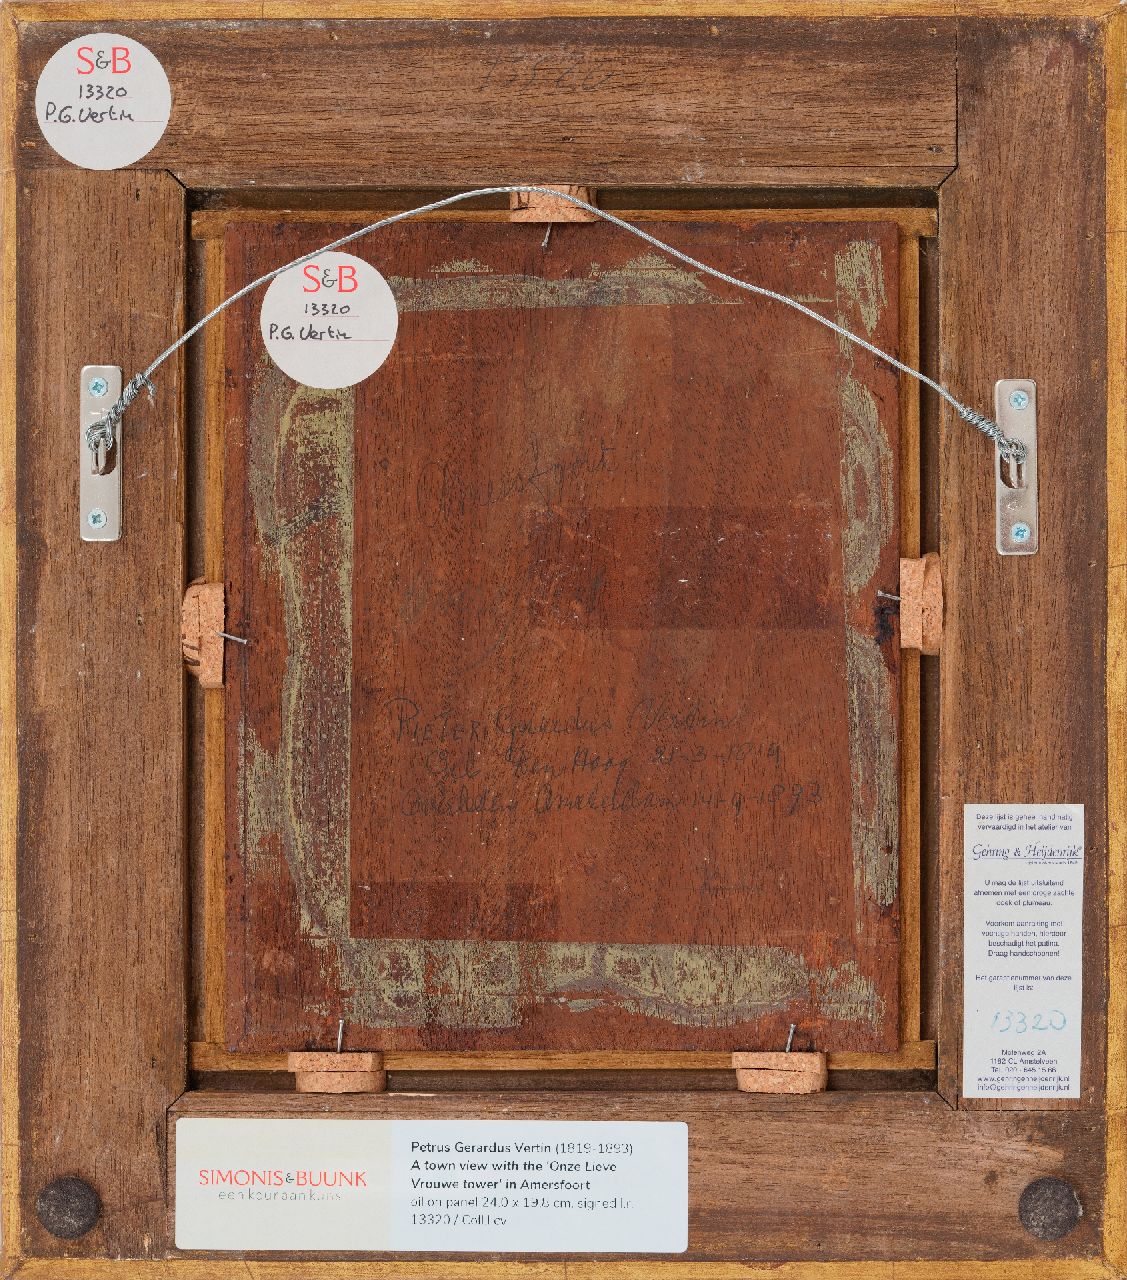 S&B
13320
P.G. Vertin
S&B
13320
P.G. Vertin
Pieter Gerardus Vertin
Geb. Den Haag 21-3-1819
Overleden Amsterdam 14-9-1893
Deze lijst is geheel handmatig
vervaardigd in het atelier van
Gehring & Heijdenrijk
U mag de lijst uitsluitend
afnemen met een droge zachte
doek of plumeau.
Voorkom aanraking met
vochtige handen, hierdoor
beschadigt het patina.
Draag handschoenen!
Het garantienummer van deze
lijst is:
13320
Molenweg 2A
1182 CL Amstelveen
Tel. 020 - 645 15 66
www.gehringenheijdenrijk.nl
info@gehringenheijdenrijk.nl
SIMONIS&BUUNK
een keur aan kunst
Petrus Gerardus Vertin (1819-1893)
A town view with the 'Onze Lieve
Vrouwe tower' in Amersfoort
oil on panel 24.0 x 19.8 cm, signed l.r.
13320 / Coll Lev